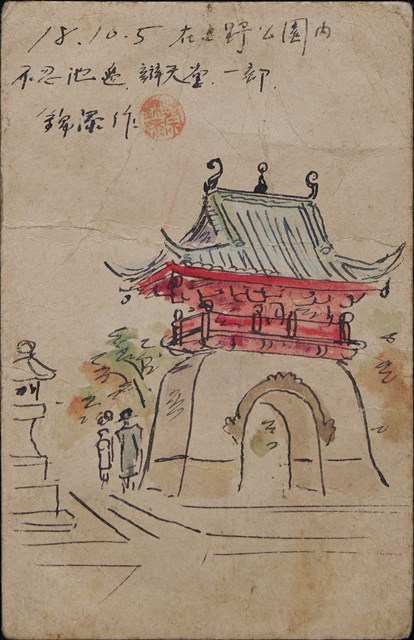 18.10.5 在上野公園内
不忍池邊 辯天堂 一部.
作